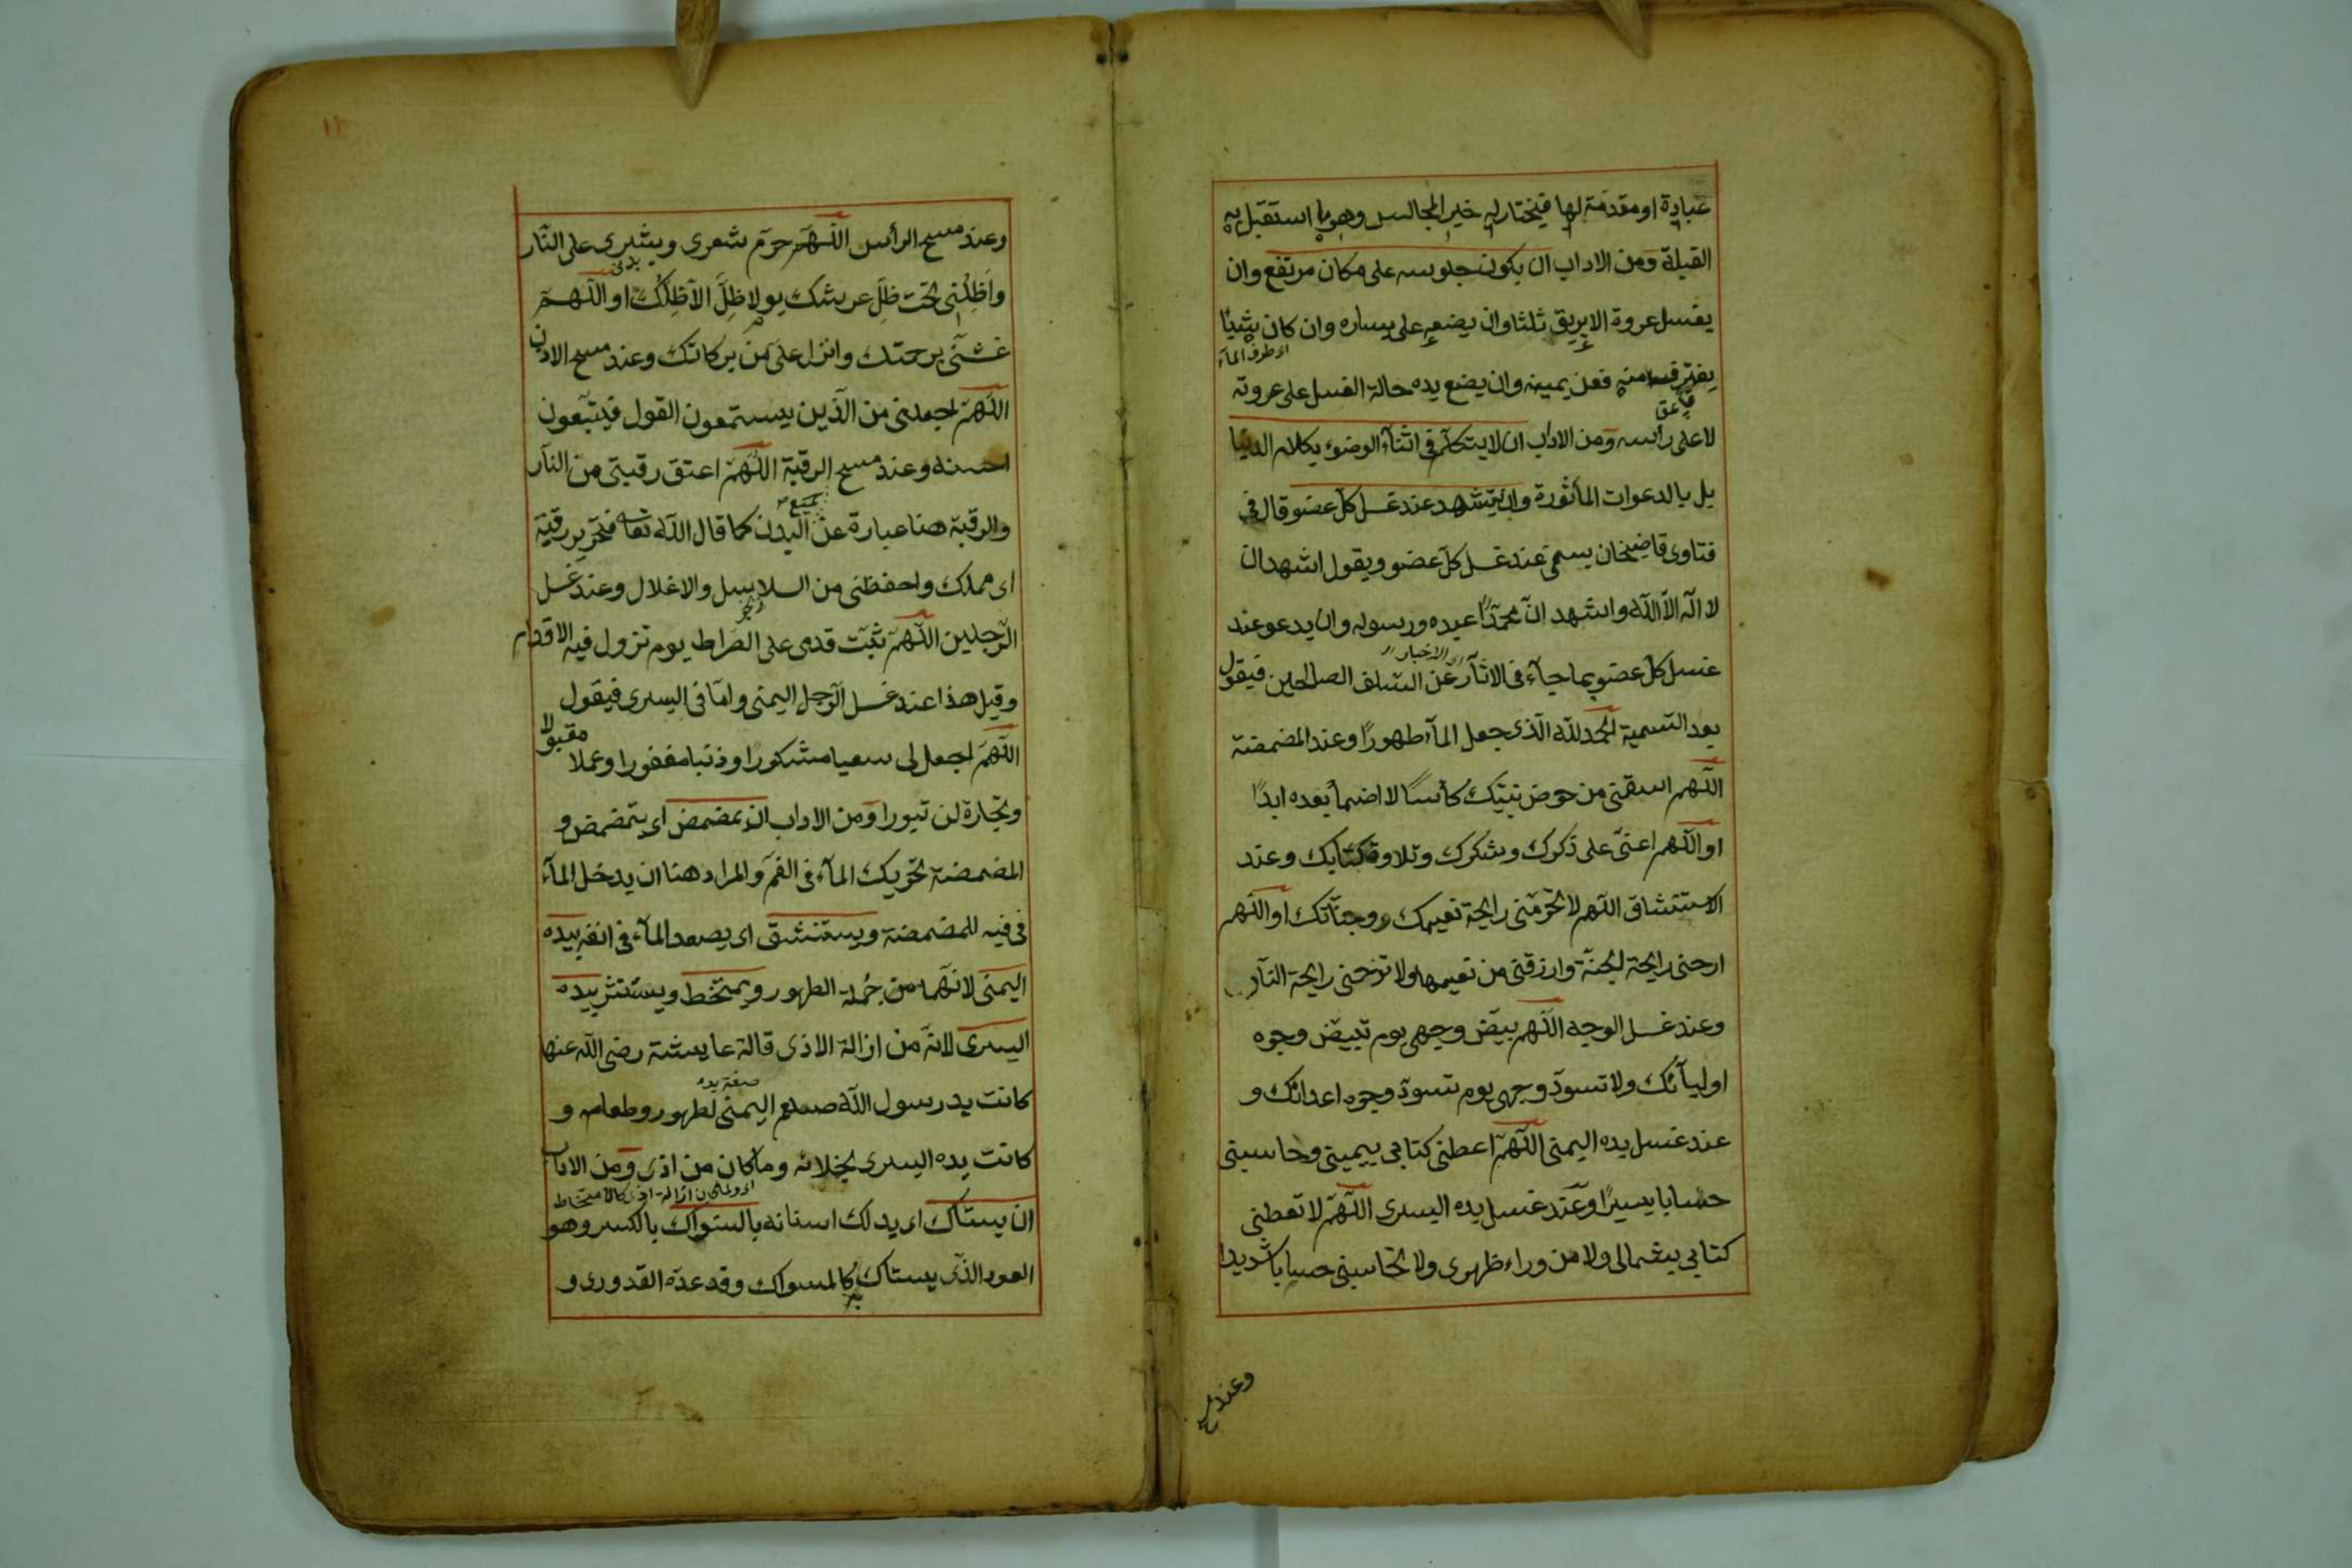 عبادة او مقدمة لها فيختار له خير المجالس وهو ما استقبل به
القبلة ومن الاداب ان يكون جلوسه على مكان مرتفع وان
يغسل عروة الابريق ثلثا وان يضعه على يساره وان كان شيئا
اى طرف الماء
يغترف منه فعن يمينه وان يضع يده حالة الغسل على عروته
لا على رأسه ومن الاداب ان لا يتكلم فى اثناء الوضوء بكلام الدنيا
بل بالدعوات المأثورة وان يتشهد عند غسل كل عضو قال فى
فتاوى قاضيخان يسمى عند غسل كل عضو ويقول اشهد ان
لا اله الا الله واشهد ان محمدا عبده ورسوله وان يدعو عند
اى الاخبار
غسل كل عضو بما جاء فى الاثار عن السلف الصالحين فيقول
بعد التسمية الحمد لله الذى جعل الماء طهورا وعند المضمضة
اللهم اسقنى من حوض نبيك كأسا لا اضمأ بعده ابدا
او اللهم اعنى على ذكرك وشكرك وتلاوة كتابك وعند
الاستنشاق اللهم لا تحرمنى رايحة نعيمك وجنّاتك او اللهم
ارحنى رايحة الجنة وارزقنى من نعيمها ولا ترحنى رايحة النار
وعند غسل الوجه اللهم بيض وجهى يوم تبيض وجوه
اوليائك ولا تسود وجهى يوم تسود وجوه اعدائك و
عند غسل يده اليمنى اللهم اعطنى كتابى بيمينى وحاسبنى
حسابا يسيرا وعند غسل يده اليسرى اللهم لا تعطنى
كتابى بشمالى ولا من وراء ظهرى ولا تحاسبنى حسابا شديدا
وعند مسح
١١
وعند مسح الرأس اللهم حرم شعرى وبشرى على النار
بدنى
واظلنى تحت ظل عرشك يوم لا ظل الا ظلك او اللهم
غشنى برحمتك وانزل على من بركاتك وعند مسح الاذن
اللهم اجعلنى من الذين يستمعون القول فيتبعون
احسنه وعند مسح الرقبة اللهم اعتق رقبتى من النار
جميع
والرقبة هنا عبارة عن البدن كما قال الله تعا فتحرير رقبة
اى مملك واحفظنى من السلاسل والاغلال وعند غسل
الرجلين اللهم ثبت قدمى على الصراط يوم تزول فيه الاقدام
وقيل هذا عند غسل الرجل اليمنى واما فى اليسرى فيقول
اللهم اجعل لى سعيا مشكورا وذنبا مغفورا وعملا مقبولا
وتجارة لن تبورا ومن الاداب ان يمضمض اى يتمضمض و
المضمضة تحريك الماء فى الفم والمراد هنا ان يدخل الماء
فى فيه للمضمضة ويستنشق اى يصعد الماء فى انفه بيده
اليمنى لانهما من جملة الطهور ويمتخط ويستنثر بيده
اليسرى لانه من ازالة الاذى قالة عايشة رضى الله عنها
صفة يده
كانت يد رسول الله صلعم اليمنى لطهوره وطعامه و
كانت يده اليسرى لخلائه وما كان من اذى ومن الاداب
اى ولما كان ازالة اذى كالامتخاط
ان يستاك اى يدلك اسنانه بالسواك بالكسر وهو
العود الذى يستاك به كالمسواك وقد عده القدورى و